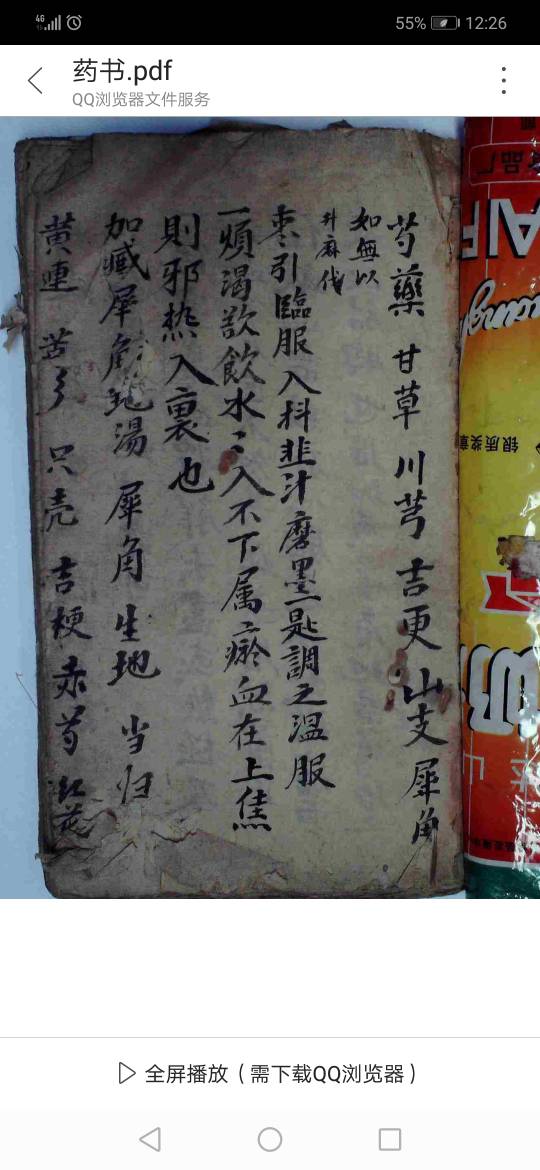 4G
55%
12:26
药书.pdf
QQ浏览器文件服务
芍藥 甘草 川芎 吉更 山支 犀角
如無以
升麻代
枣引臨服入抖韭汁磨墨一匙調之温服
一煩渴欲飲水〻入不下属瘀血在上焦
則邪热入裏也
加减犀角地湯 犀角 生地 当归
黄連 苦 只壳 吉梗 赤芍 红花
银质奖章
全屏播放（需下载QQ浏览器）